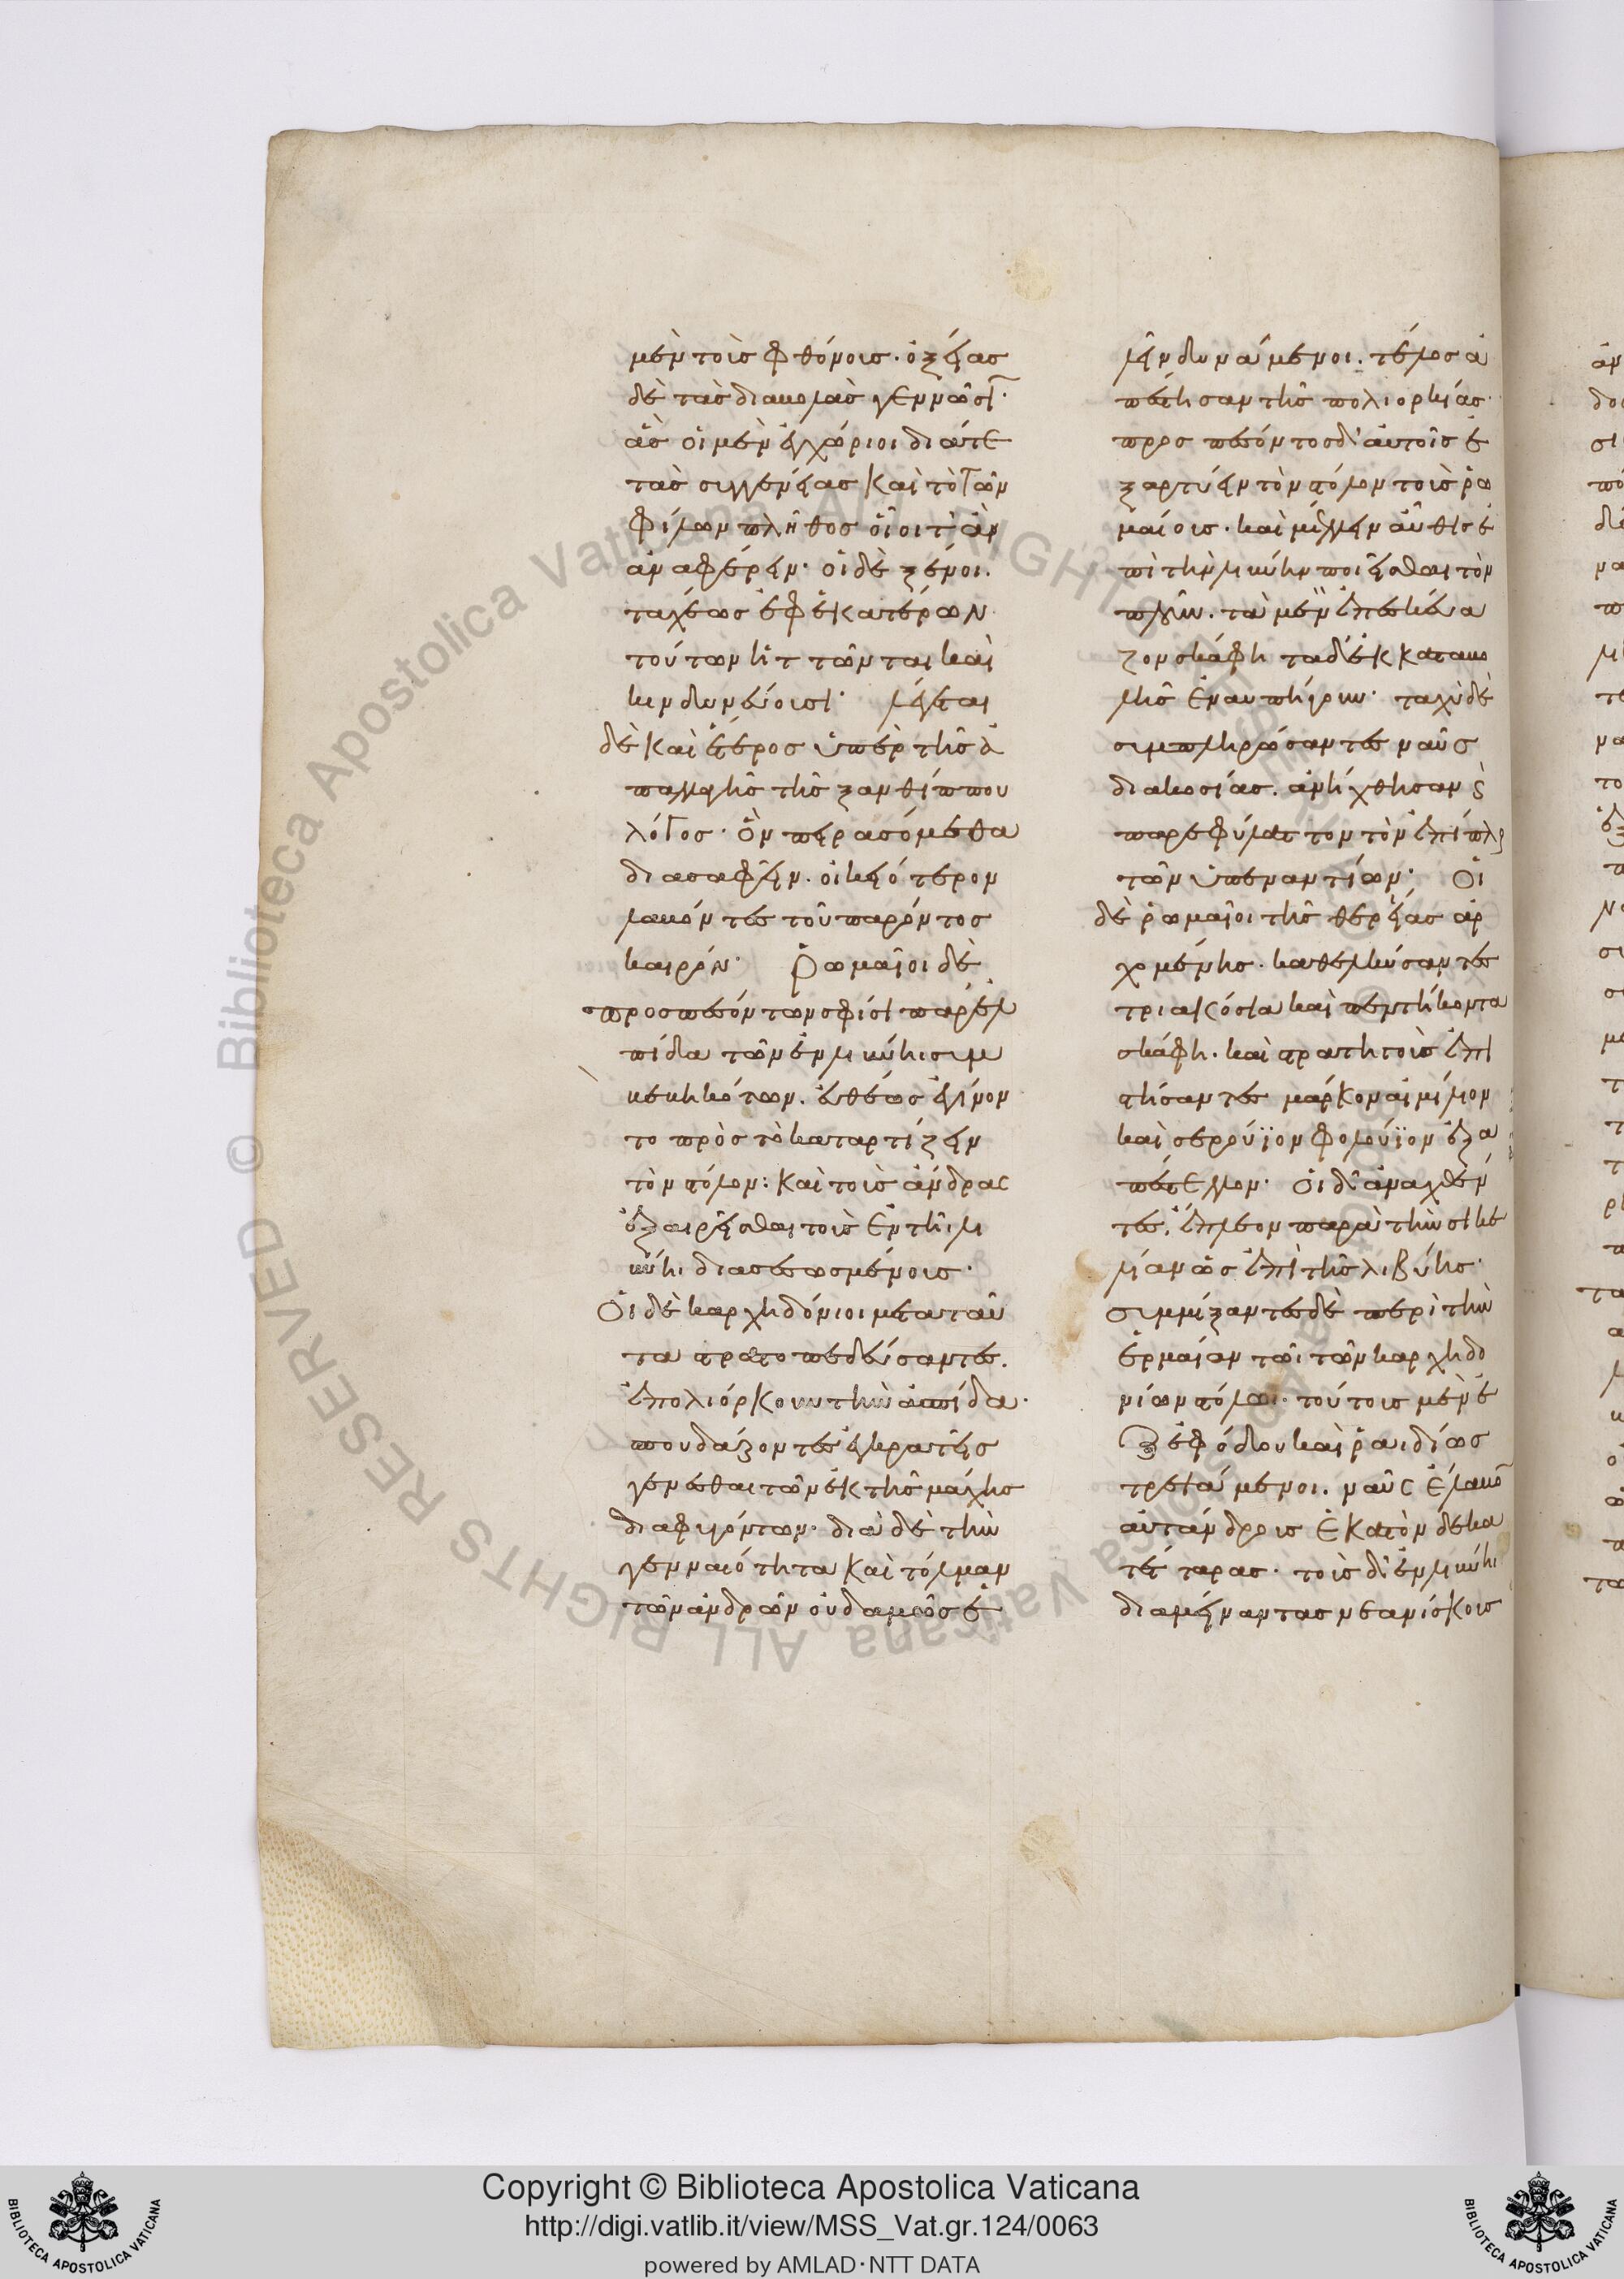 μὲν τοὺς φθόνους· ὀξείας
δὲ τὰς διαβολὰς γεννῶσι·
ἃς οἱ μὲν ἐγχώριοι διά τε
τὰς συγγενείας καὶ τὸ τῶν
φίλων πλῆθος οἷοί τ' ἂν
ἀναφέρειν· οἱ δὲ ξένοι.
ταχέως ἐφ' ἑκατέρων
τούτων ἡττῶνται καὶ
κινδυνεύουσι· λέγεται
δὲ καὶ ἕτερος ὑπὲρ τῆς ἀ
παλλαγῆς τῆς ξανθίππου
λόγος· ὃν πειρασόμεθα
διασαφεῖν. οἰκειότερον
λαβόντες τοῦ παρόντος
καιρόν· Ῥωμαῖοι δὲ
προσπεσόντων σφίσι παρ' ἐλ
πίδα τῶν ἐν λιβύηι συμ
βεβηκότων. εὐθέως ἐγίνον
το πρὸς τὸ καταρτίζειν
τὸν στόλον: καὶ τοὺς ἄνδρας
ἐξαιρεῖσθαι τοὺς ἐν τῆι λι
βύηι διασεσωσμένους·
Οἱ δὲ καρχηδόνιοι μετὰ ταῦ
τα στρατοπεδεύσαντες.
ἐπολιόρκουν τὴν ἀσπίδα·
σπουδάζοντες ἐγκρατεῖς
γενέσθαι τῶν ἐκ τῆς μάχης
διαφυγόντων· διὰ δὲ τὴν
γενναιότητα καὶ τόλμαν
τῶν ἀνδρῶν οὐδαμῶς ἑ
λεῖν δυνάμενοι. τέλος ἀ
πέστησαν τῆς πολιορκίας·
προσπεσόντος δ' αὐτοῖς ἐ
ξαρτύειν τὸν στόλον τοὺς ῥω
μαίους· καὶ μέλλειν αὖθις ἐ
πὶ τὴν λιβύην ποιεῖσθαι τὸν
πλοῦν. τὰ μὲν ἐπεσκεύα
ζον σκάφη τὰ δ' ἐκ καταβο
λῆς ἐναυπήγουν· ταχὺ δὲ
συμπληρώσαντες ναῦς
διακοσίας. ἀνήχθησαν καὶ
παρεφύλαττον τὸν ἐπίπλουν
τῶν ὑπεναντίων· Οἱ
δὲ ῥωμαῖοι τῆς θερείας ἀρ
χομένης. καθελκύσαντες
τριακόσια καὶ πεντήκοντα
σκάφη. καὶ στρατηγοὺς ἐπι
στήσαντες μάρκον αἰμίλιον
καὶ σερουΐον φολούϊον ἐξα
πέστελλον· οἱ δ' ἀναχθέν
τες. ἔπλεον παρὰ τὴν σικε
λίαν ὡς ἐπὶ τῆς λιβύης·
συμμίξαντες δὲ περὶ τὴν
ἑρμαίαν τῶι τῶν καρχηδο
νίων στόλωι· τούτους μὲν ἐ
ξ ἐφόδου καὶ ῥαιδίως
τρεψάμενοι. ναῦς ἔλαβον
αὐτάνδρους ἑκατὸν δεκα
τέτταρας· τοὺς δ' ἐν λιβύηι
διαμείναντας νεανίσκους
Copyright © Biblioteca Apostolica Vaticana
http://digi.vatlib.it/view/MSS_Vat.gr.124/0063
powered by AMLAD·NTT DATA